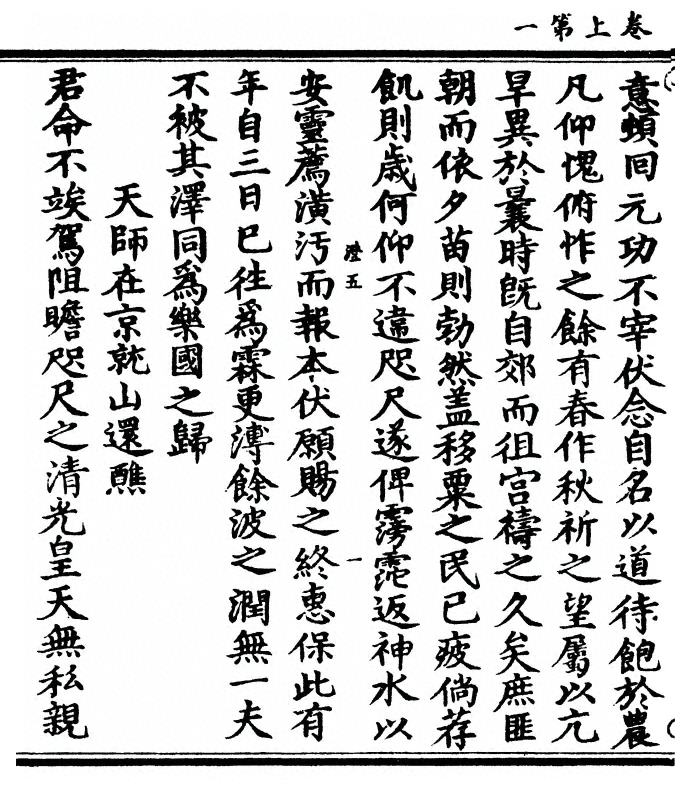 卷上第一
意頻回元功不宰伏念自名以道待飽於農
凡仰愧俯怍之餘有春作秋祈之望屬以亢
旱異於曩時旣自郊而徂宮禱之久矣庶匪
朝而依夕苗則勃然盖移粟之民已疲倘荐
飢則歲何仰不違咫尺遂俾霶霃返神水以
澄五
一
安靈薦潢汚而報本伏願賜之終惠保此有
年自三日巳徃爲霖更溥餘波之潤無一夫
不被其澤同爲樂國之歸
天師在京就山還醮
君命不竢駕阻瞻咫尺之清光皇天無私親